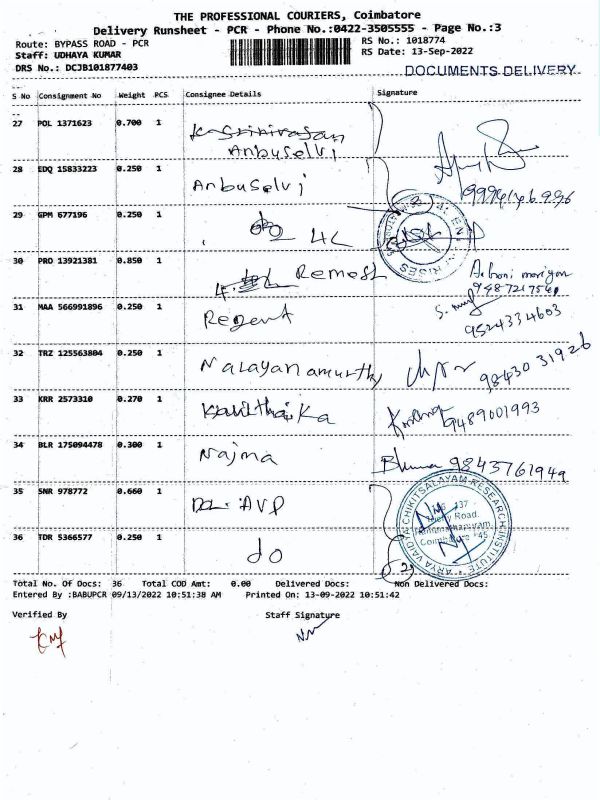 THE PROFESSIONAL COURIERS, Coimbatore
Delivery Runsheet - PCR - Phone No.:0422-3505555 - Page No.:3
Route: BYPASS ROAD - PCR
RS No.: 1018774
Staff: UDHAYA KUMAR
RS Date: 13-Sep-2022
DRS No.: DCJB101877403
DOCUMENTS DELIVERY
S No Consignment No Weight PCS Consignee Details Signature
27 POL 1371623 0.700 1 K. Srinivasan
Anbuselvi
28 EDQ 15833223 0.250 1 Anbuselvi
29 GPM 677196 0.250 1 4L
30 PRO 13921381 0.850 1 Remesh
31 MAA 566991896 0.250 1 Regent
9524334603
32 TRZ 125563804 0.250 1 Narayanamurthy
98430 31926
33 KRR 2573310 0.270 1
9489001993
34 BLR 175094478 0.300 1 Najma
9843761949
35 SNR 978772 0.660 1 AVP
36 TDR 5366577 0.250 1 do
ARYA VAIDYA CHIKITSALAYAM RESEARCH INSTITUTE
137
Road,
Ramanathapuram,
Coimbatore - 45.
Total No. Of Docs: 36 Total COD Amt: 0.00 Delivered Docs: Non Delivered Docs:
Entered By :BABUPCR 09/13/2022 10:51:38 AM Printed On: 13-09-2022 10:51:42
Verified By Staff Signature